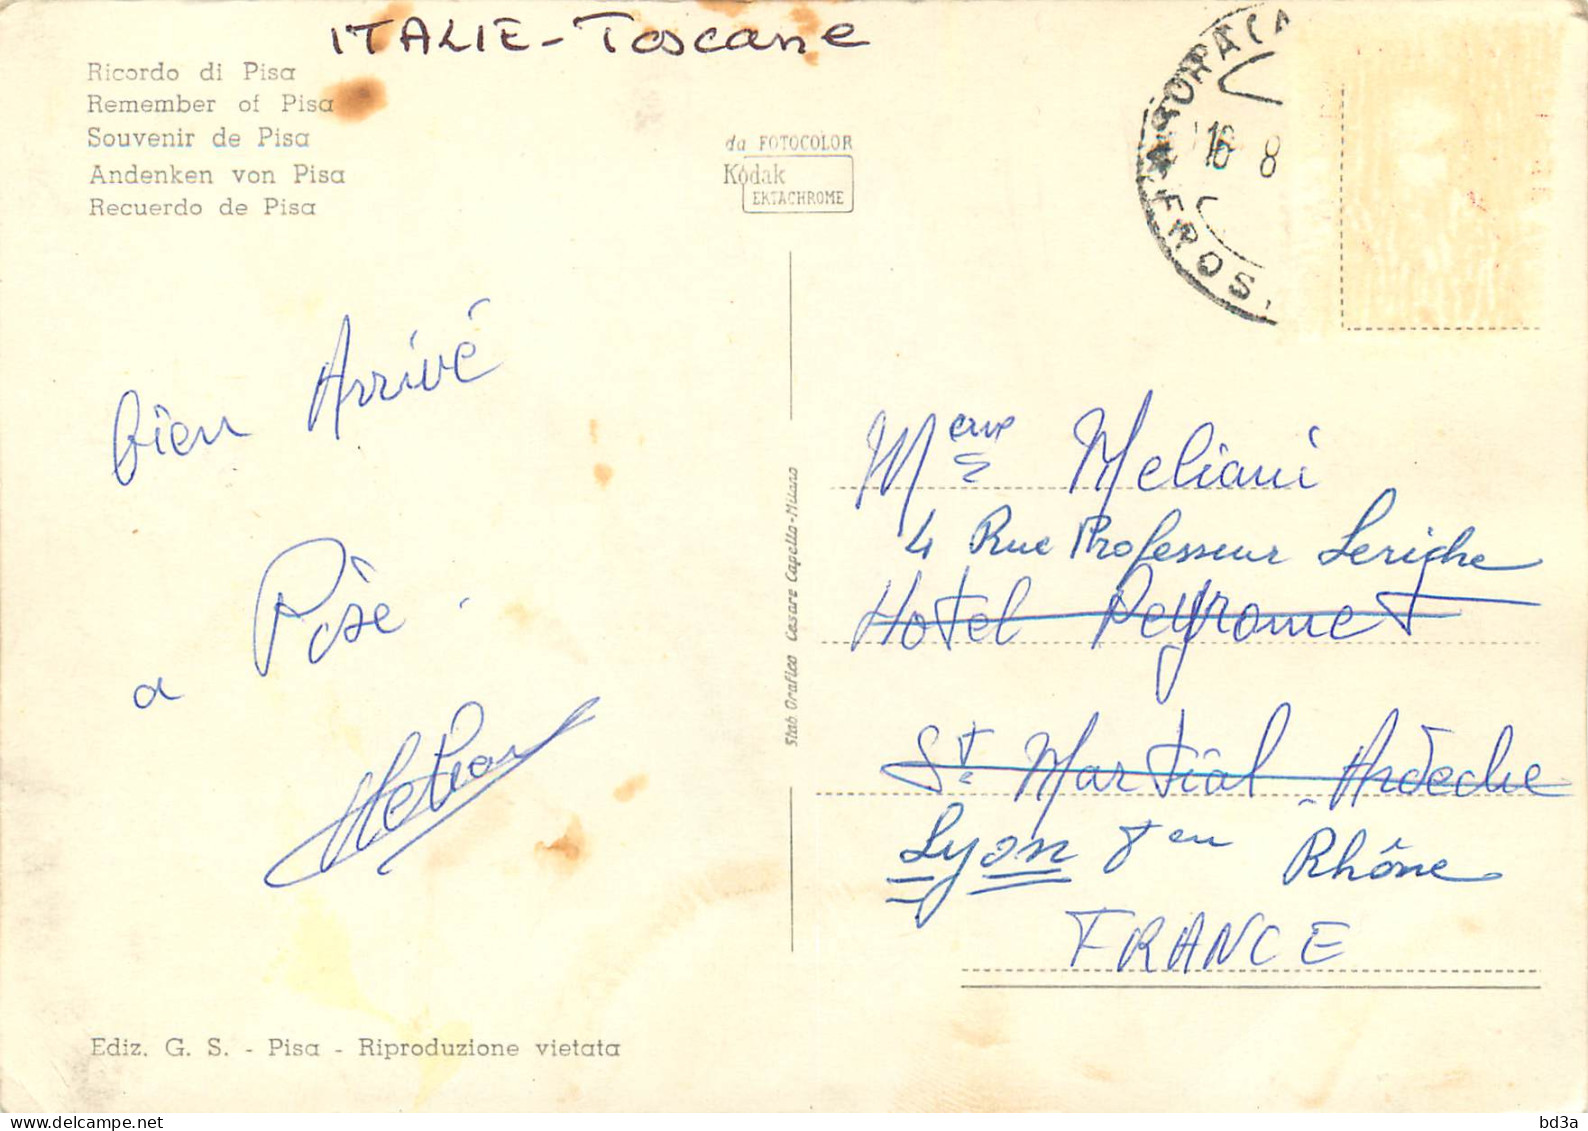 ITALIE - Toscane
Ricordo di Pisa
Remember of Pisa
Souvenir de Pisa
Andenken von Pisa
Recuerdo de Pisa
da FOTOCOLOR
Kodak
EKTACHROME
16 8
FROS.
bien Arrivé
a Pise.
Stab Grafico Cesare Capello-Milano
Meliani
4 Rue Professeur Leriche
Hotel Peyronnet
St Martial - Ardèche
Lyon 8 en Rhône
FRANCE
Ediz. G. S. - Pisa - Riproduzione vietata
bd3a